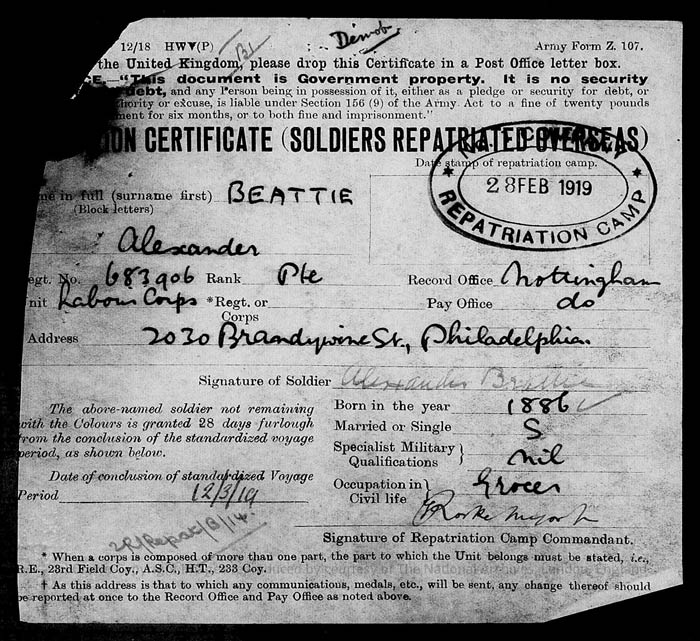 Demob
12/18 HWV(P) Army Form Z. 107.
the United Kingdom, please drop this Certificate in a Post Office letter box.
CE.—"This document is Government property. It is no security
debt, and any Person being in possession of it, either as a pledge or security for debt, or
hority or excuse, is liable under Section 156 (9) of the Army Act to a fine of twenty pounds
ment for six months, or to both fine and imprisonment."
ION CERTIFICATE (SOLDIERS REPATRIATED OVERSEAS)
Date stamp of repatriation camp.
28 FEB 1919
REPATRIATION CAMP
me in full (surname first) BEATTIE
(Block letters)
Alexander
egt. No. 683906 Rank Pte Record Office Nottingham
nit Labour Corps *Regt. or Corps Pay Office do
Address 2030 Brandywine St., Philadelphia
Signature of Soldier Alexander Beattie
The above-named soldier not remaining
with the Colours is granted 28 days furlough
from the conclusion of the standardized voyage
period, as shown below.
Date of conclusion of standardized Voyage
Period 12/3/19
Born in the year 1886
Married or Single S
Specialist Military Qualifications } nil
Occupation in Civil life } Grocer
Signature of Repatriation Camp Commandant.
* When a corps is composed of more than one part, the part to which the Unit belongs must be stated, i.e.,
R.E., 23rd Field Coy., A.S.C., H.T., 233 Coy.
† As this address is that to which any communications, medals, etc., will be sent, any change thereof should
be reported at once to the Record Office and Pay Office as noted above.